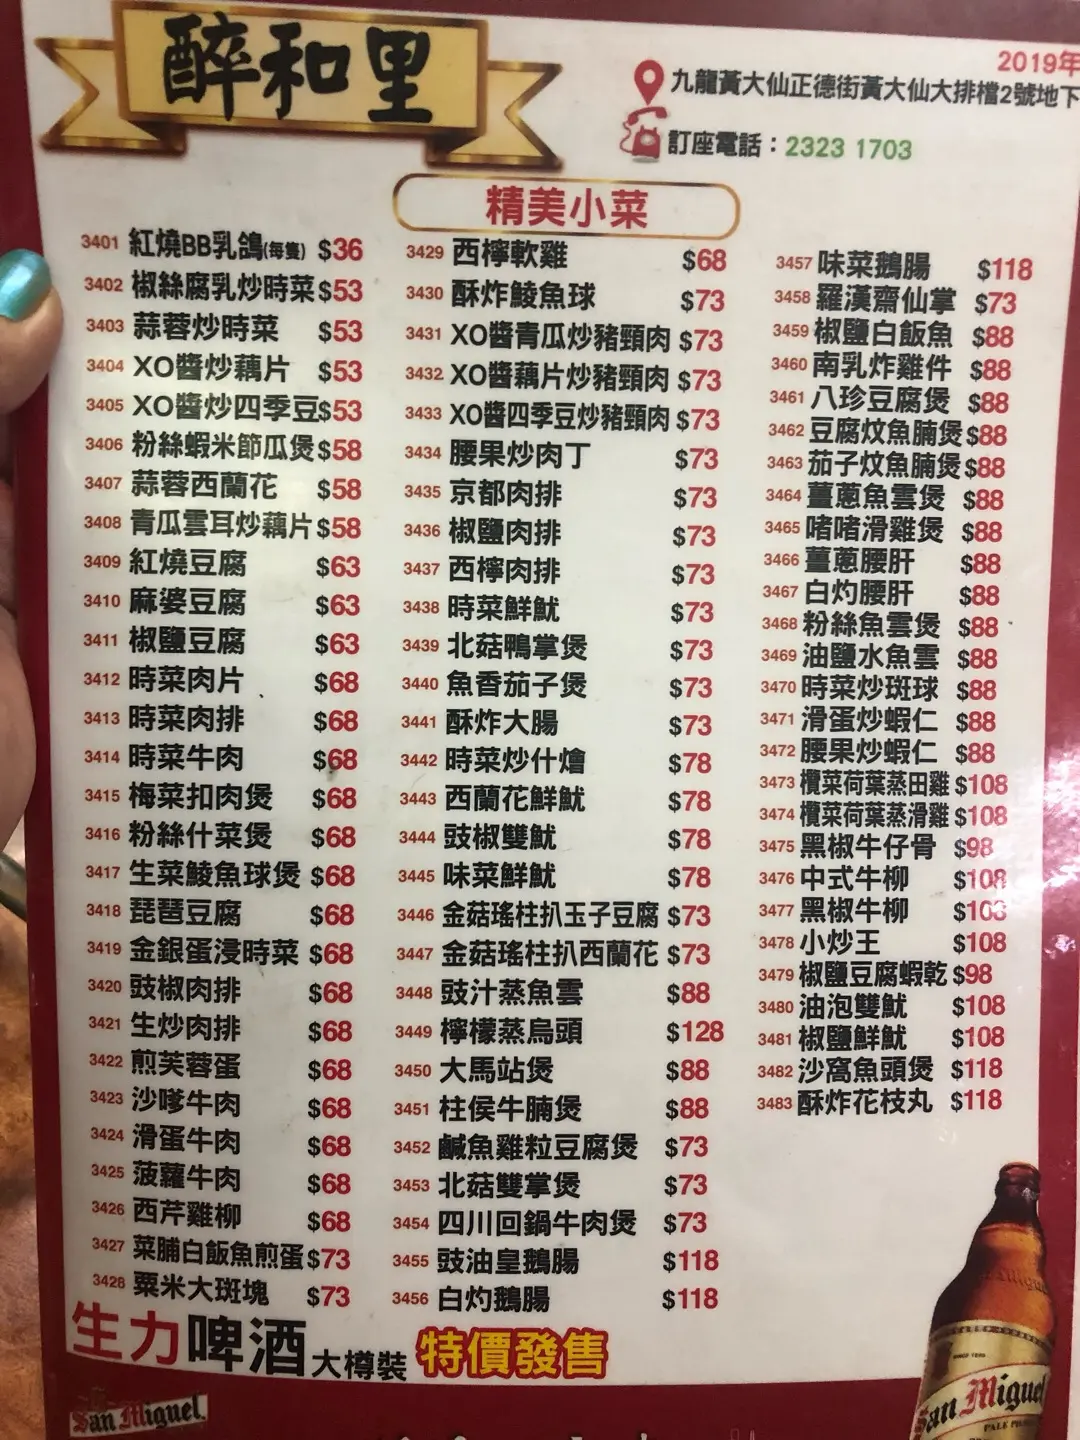 醉和里
2019年
九龍黃大仙正德街黃大仙大排檔2號地下
訂座電話：2323 1703
精美小菜
3401 紅燒BB乳鴿(每隻) $36
3402 椒絲腐乳炒時菜 $53
3403 蒜蓉炒時菜 $53
3404 XO醬炒藕片 $53
3405 XO醬炒四季豆 $53
3406 粉絲蝦米節瓜煲 $58
3407 蒜蓉西蘭花 $58
3408 青瓜雲耳炒藕片 $58
3409 紅燒豆腐 $63
3410 麻婆豆腐 $63
3411 椒鹽豆腐 $63
3412 時菜肉片 $68
3413 時菜肉排 $68
3414 時菜牛肉 $68
3415 梅菜扣肉煲 $68
3416 粉絲什菜煲 $68
3417 生菜鯪魚球煲 $68
3418 琵琶豆腐 $68
3419 金銀蛋浸時菜 $68
3420 豉椒肉排 $68
3421 生炒肉排 $68
3422 煎芙蓉蛋 $68
3423 沙嗲牛肉 $68
3424 滑蛋牛肉 $68
3425 菠蘿牛肉 $68
3426 西芹雞柳 $68
3427 菜脯白飯魚煎蛋 $73
3428 粟米大斑塊 $73
3429 西檸軟雞 $68
3430 酥炸鯪魚球 $73
3431 XO醬青瓜炒豬頸肉 $73
3432 XO醬藕片炒豬頸肉 $73
3433 XO醬四季豆炒豬頸肉 $73
3434 腰果炒肉丁 $73
3435 京都肉排 $73
3436 椒鹽肉排 $73
3437 西檸肉排 $73
3438 時菜鮮魷 $73
3439 北菇鴨掌煲 $73
3440 魚香茄子煲 $73
3441 酥炸大腸 $73
3442 時菜炒什燴 $78
3443 西蘭花鮮魷 $78
3444 豉椒雙魷 $78
3445 味菜鮮魷 $78
3446 金菇瑤柱扒玉子豆腐 $73
3447 金菇瑤柱扒西蘭花 $73
3448 豉汁蒸魚雲 $88
3449 檸檬蒸烏頭 $128
3450 大馬站煲 $88
3451 柱侯牛腩煲 $88
3452 鹹魚雞粒豆腐煲 $73
3453 北菇雙掌煲 $73
3454 四川回鍋牛肉煲 $73
3455 豉油皇鵝腸 $118
3456 白灼鵝腸 $118
3457 味菜鵝腸 $118
3458 羅漢齋仙掌 $73
3459 椒鹽白飯魚 $88
3460 南乳炸雞件 $88
3461 八珍豆腐煲 $88
3462 豆腐炆魚腩煲 $88
3463 茄子炆魚腩煲 $88
3464 薑蔥魚雲煲 $88
3465 啫啫滑雞煲 $88
3466 薑蔥腰肝 $88
3467 白灼腰肝 $88
3468 粉絲魚雲煲 $88
3469 油鹽水魚雲 $88
3470 時菜炒斑球 $88
3471 滑蛋炒蝦仁 $88
3472 腰果炒蝦仁 $88
3473 欖菜荷葉蒸田雞 $108
3474 欖菜荷葉蒸滑雞 $108
3475 黑椒牛仔骨 $98
3476 中式牛柳 $108
3477 黑椒牛柳 $108
3478 小炒王 $108
3479 椒鹽豆腐蝦乾 $98
3480 油泡雙魷 $108
3481 椒鹽鮮魷 $108
3482 沙窩魚頭煲 $118
3483 酥炸花枝丸 $118
生力啤酒大樽裝 特價發售
San Miguel
San Miguel